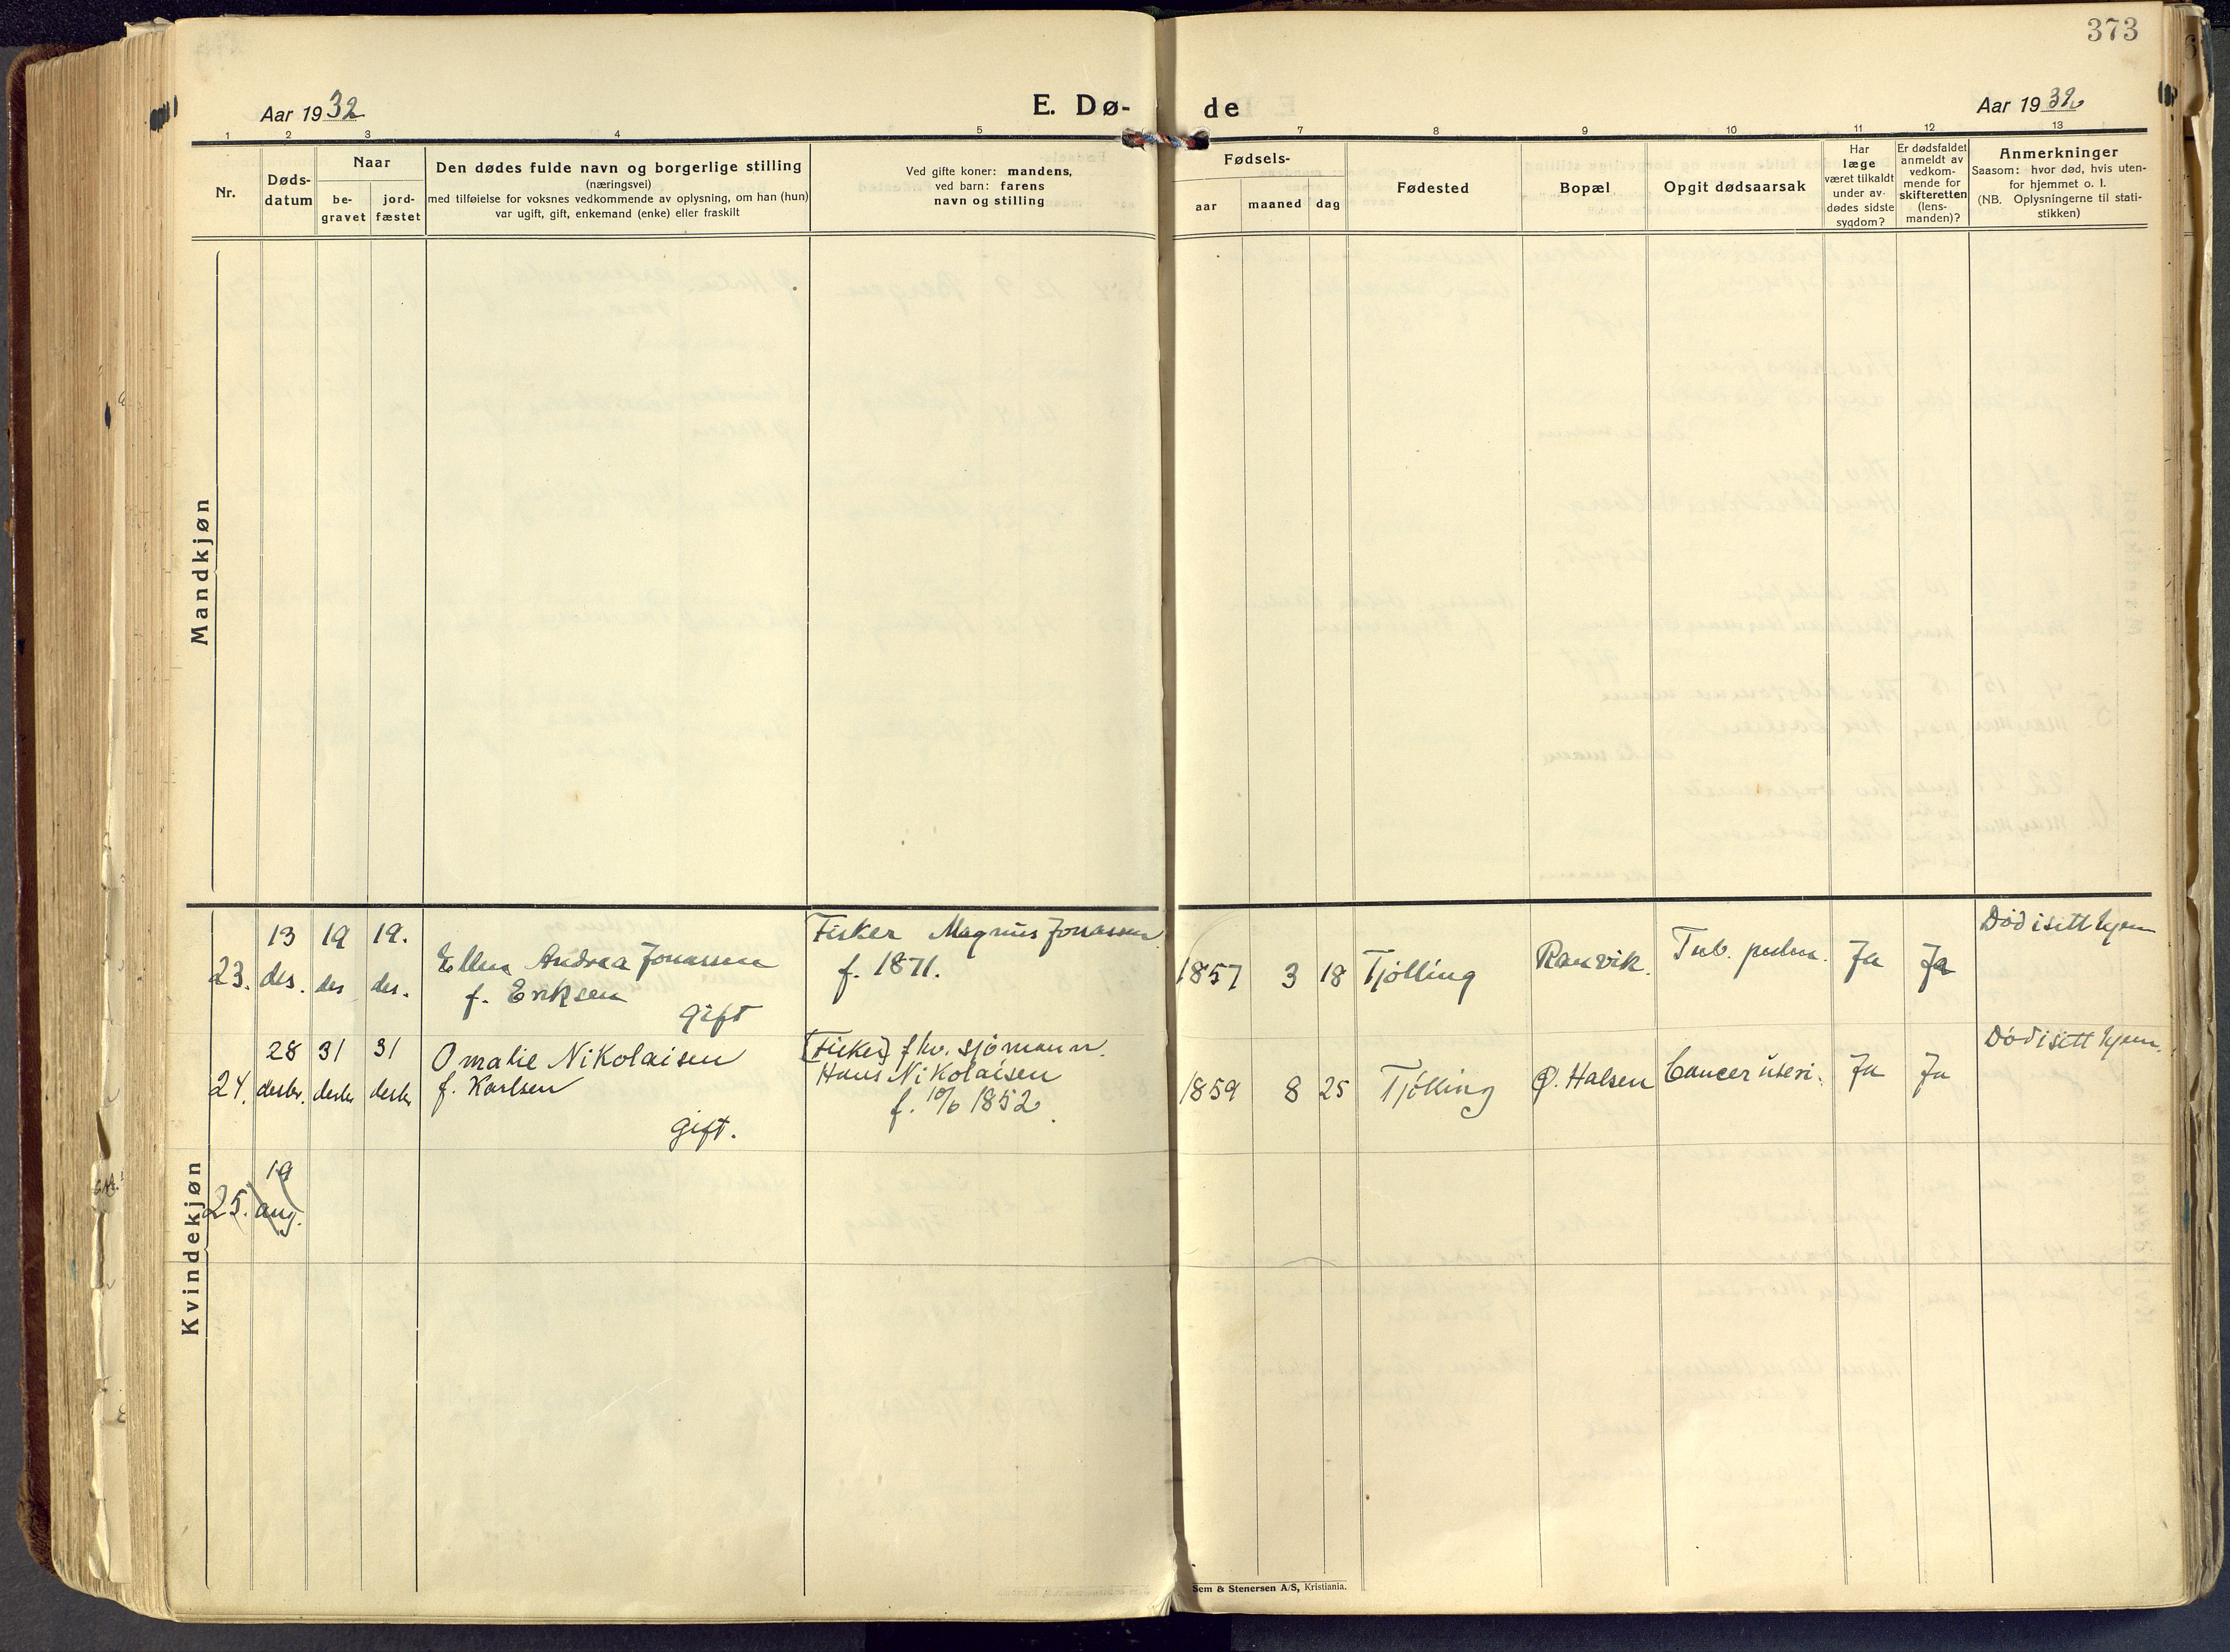 373
Aar 1932
E. Dø-
de
Aar 1932
1
2
3
4
5
7
8
9
10
11
12
13
Nr.
Døds-
datum
Naar
be-
gravet
jord-
fæstet
Den dødes fulde navn og borgerlige stilling
(næringsvei)
med tilføielse for voksnes vedkommende av oplysning, om han (hun)
var ugift, gift, enkemand (enke) eller fraskilt
Ved gifte koner: mandens,
ved barn: farens
navn og stilling
Fødsels-
aar
maaned
dag
Fødested
Bopæl
Opgit dødsaarsak
Har
læge
været tilkaldt
under av-
dødes sidste
sygdom?
Er dødsfaldet
anmeldt av
vedkom-
mende for
skifteretten
(lens-
manden)?
Anmerkninger
Saasom: hvor død, hvis uten-
for hjemmet o. l.
(NB. Oplysningerne til stati-
stikken)
Mandkjøn
Kvindekjøn
23.
13
des.
19
des
19.
des.
Ellen Andrea Jonassen
f. Eriksen
gift
Fisker Magnus Jonassen
f. 1871.
1857
3
18
Tjølling
Ranvik.
Tub. pulm.
Ja
Ja
Död i sitt hjem
24.
28
desbr.
31
desbr
31
desbr
Omalie Nikolaisen
f. Karlsen
gift.
[Fisker] fhv. sjömann.
Hans Nikolaisen
f. 10/6 1852.
1859
8
25
Tjölling
Ø. Halsen
Cancer uteri.
Ja
Ja
Död i sitt hjem.
25.
19
aug.
Sem & Stenersen A/S, Kristiania.